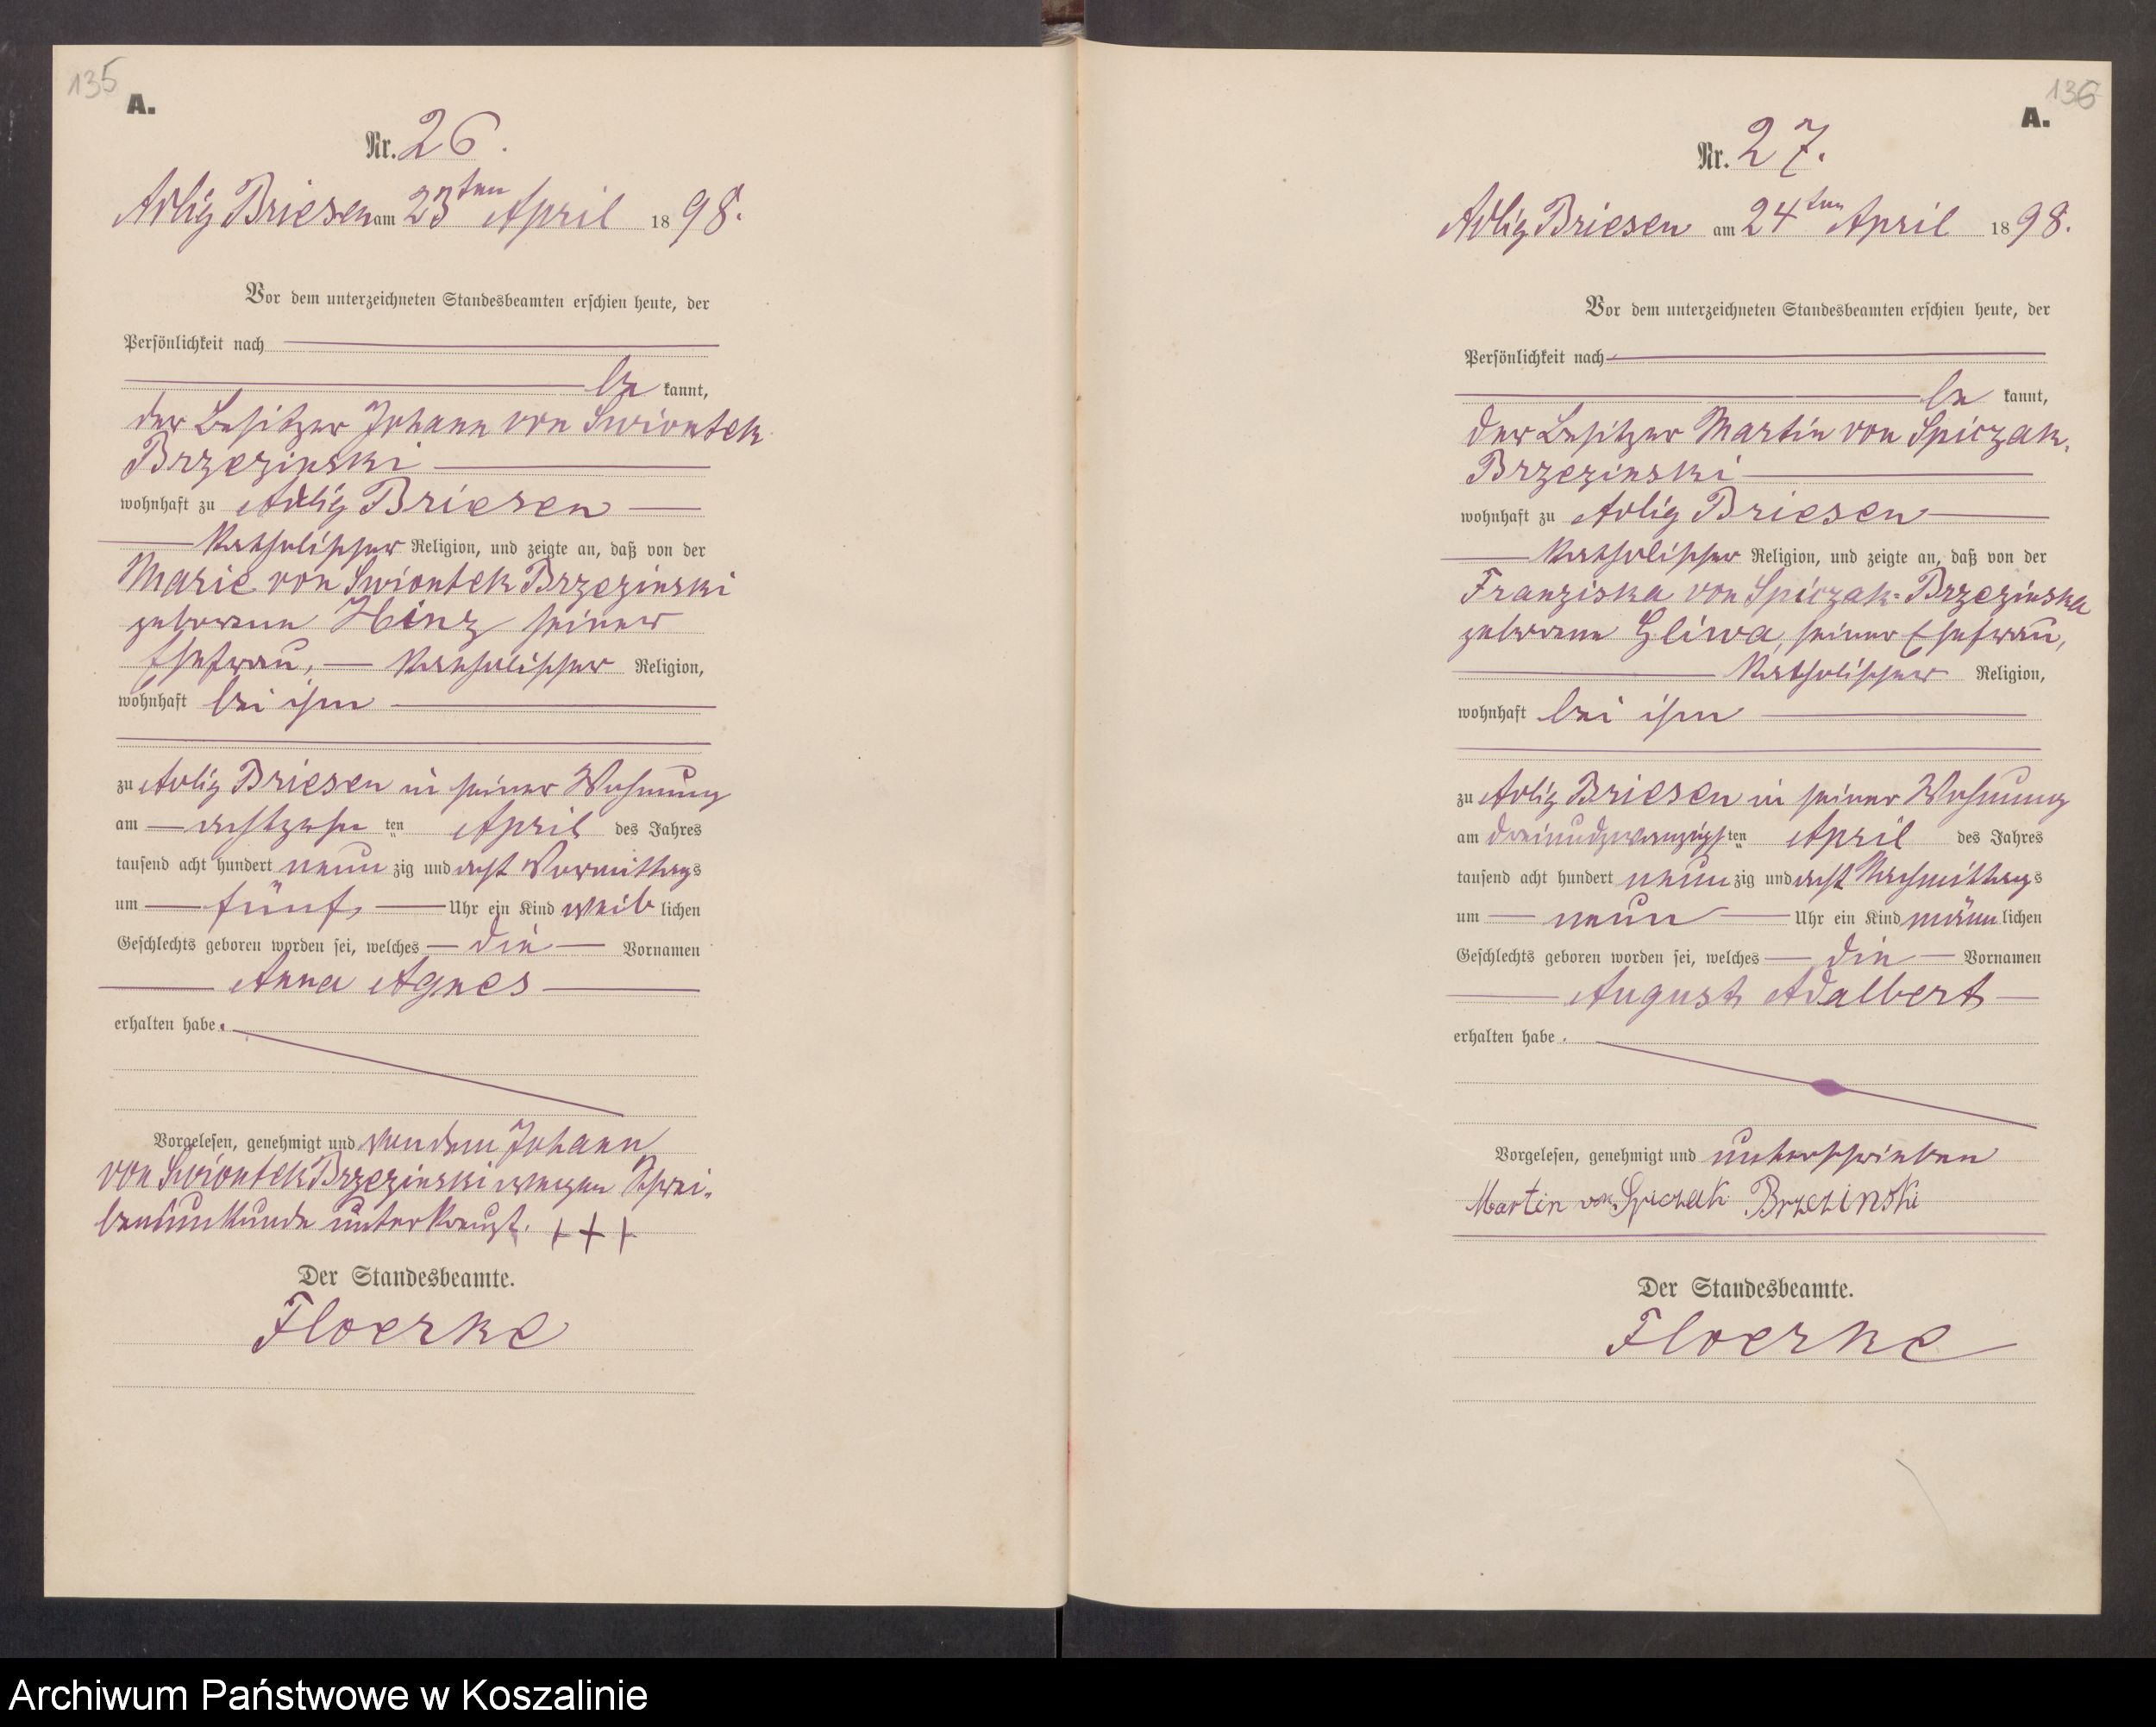 135
A.
Nr. 26.
Adlig Briesen am 23ten April 1898.
Vor dem unterzeichneten Standesbeamten erschien heute, der
Persönlichkeit nach
be kannt,
der Besitzer Johann von Swiontek
Brzezinski
wohnhaft zu Adlig Briesen
katholischer Religion, und zeigte an, daß von der
Marie von Swiontek Brzezinski
geborenen Hinz seiner
Ehefrau, katholischer Religion,
wohnhaft bei ihm
zu Adlig Briesen in seiner Wohnung
am achtzehn ten April des Jahres
tausend acht hundert neun zig und acht Vormittags
um fünf Uhr ein Kind weib lichen
Geschlechts geboren worden sei, welches die Vornamen
Anna Agnes
erhalten habe.
Vorgelesen, genehmigt und von dem Johann
von Swiontek Brzezinski wegen Schrei-
bensunkunde unterkreuzt. +++
Der Standesbeamte.
Floerke
136
A.
Nr. 27.
Adlig Briesen am 24ten April 1898.
Vor dem unterzeichneten Standesbeamten erschien heute, der
Persönlichkeit nach
be kannt,
der Besitzer Martin von Spiczak-
Brzezinski
wohnhaft zu Adlig Briesen
katholischer Religion, und zeigte an, daß von der
Franziska von Spiczak-Brzezinska
geborene Gliwa, seiner Ehefrau,
katholischer Religion,
wohnhaft bei ihm
zu Adlig Briesen in seiner Wohnung
am dreiundzwanzigsten April des Jahres
tausend acht hundert neun zig und acht Nachmittags
um neun Uhr ein Kind männ lichen
Geschlechts geboren worden sei, welches die Vornamen
August Adalbert
erhalten habe.
Vorgelesen, genehmigt und unterschrieben
Martin von Spiczak Brzezinski
Der Standesbeamte.
Floerke
Archiwum Państwowe w Koszalinie